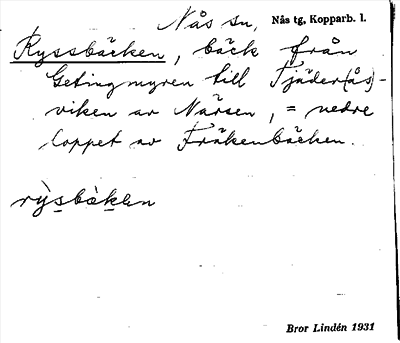 Nås sn, Nås tg, Kopparb. l.
Ryssbäcken, bäck från
Getingmyren till Tjäder(ås)-
viken av Närsen, = nedre
loppet av Fräkenbäcken.
rỳsbàkən
Bror Lindén 1931